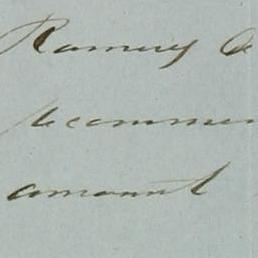 Ramsey
recommen
amount